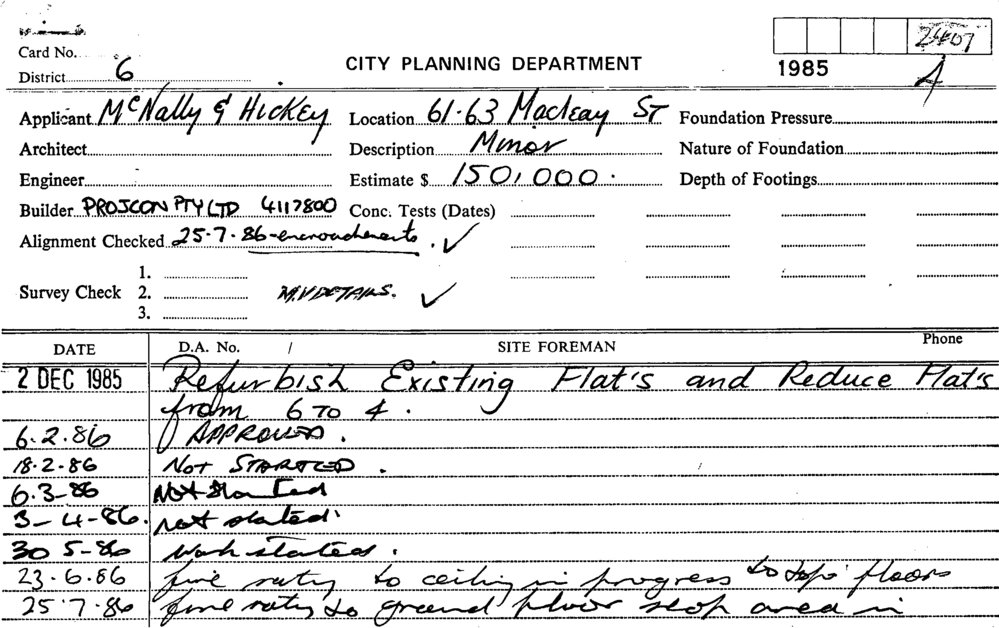 Card No.
District 6
CITY PLANNING DEPARTMENT
1985
A
Applicant McNally & Hickey
Location 61·63 Macleay ST
Foundation Pressure
Architect
Description Minor
Nature of Foundation
Engineer
Estimate $ 150,000.
Depth of Footings
Builder PROJCON PTY LTD 4117800
Conc. Tests (Dates)
Alignment Checked 25·7·86-encroachments. ✓
Survey Check
1.
2. DETAILS. ✓
3.
DATE
D.A. No. /
SITE FOREMAN
Phone
2 DEC 1985 Refurbish Existing Flat's and Reduce Flat's
from 6 TO 4.
6·2·86 APPROVED.
18·2·86 NOT STARTED.
6·3-86 Not Started
3-4-86. not stated
30 5-86 Work stated.
23·6·86 fire rating to ceiling in progress to top floors
25·7·86 fire rating to ground floor shop area in